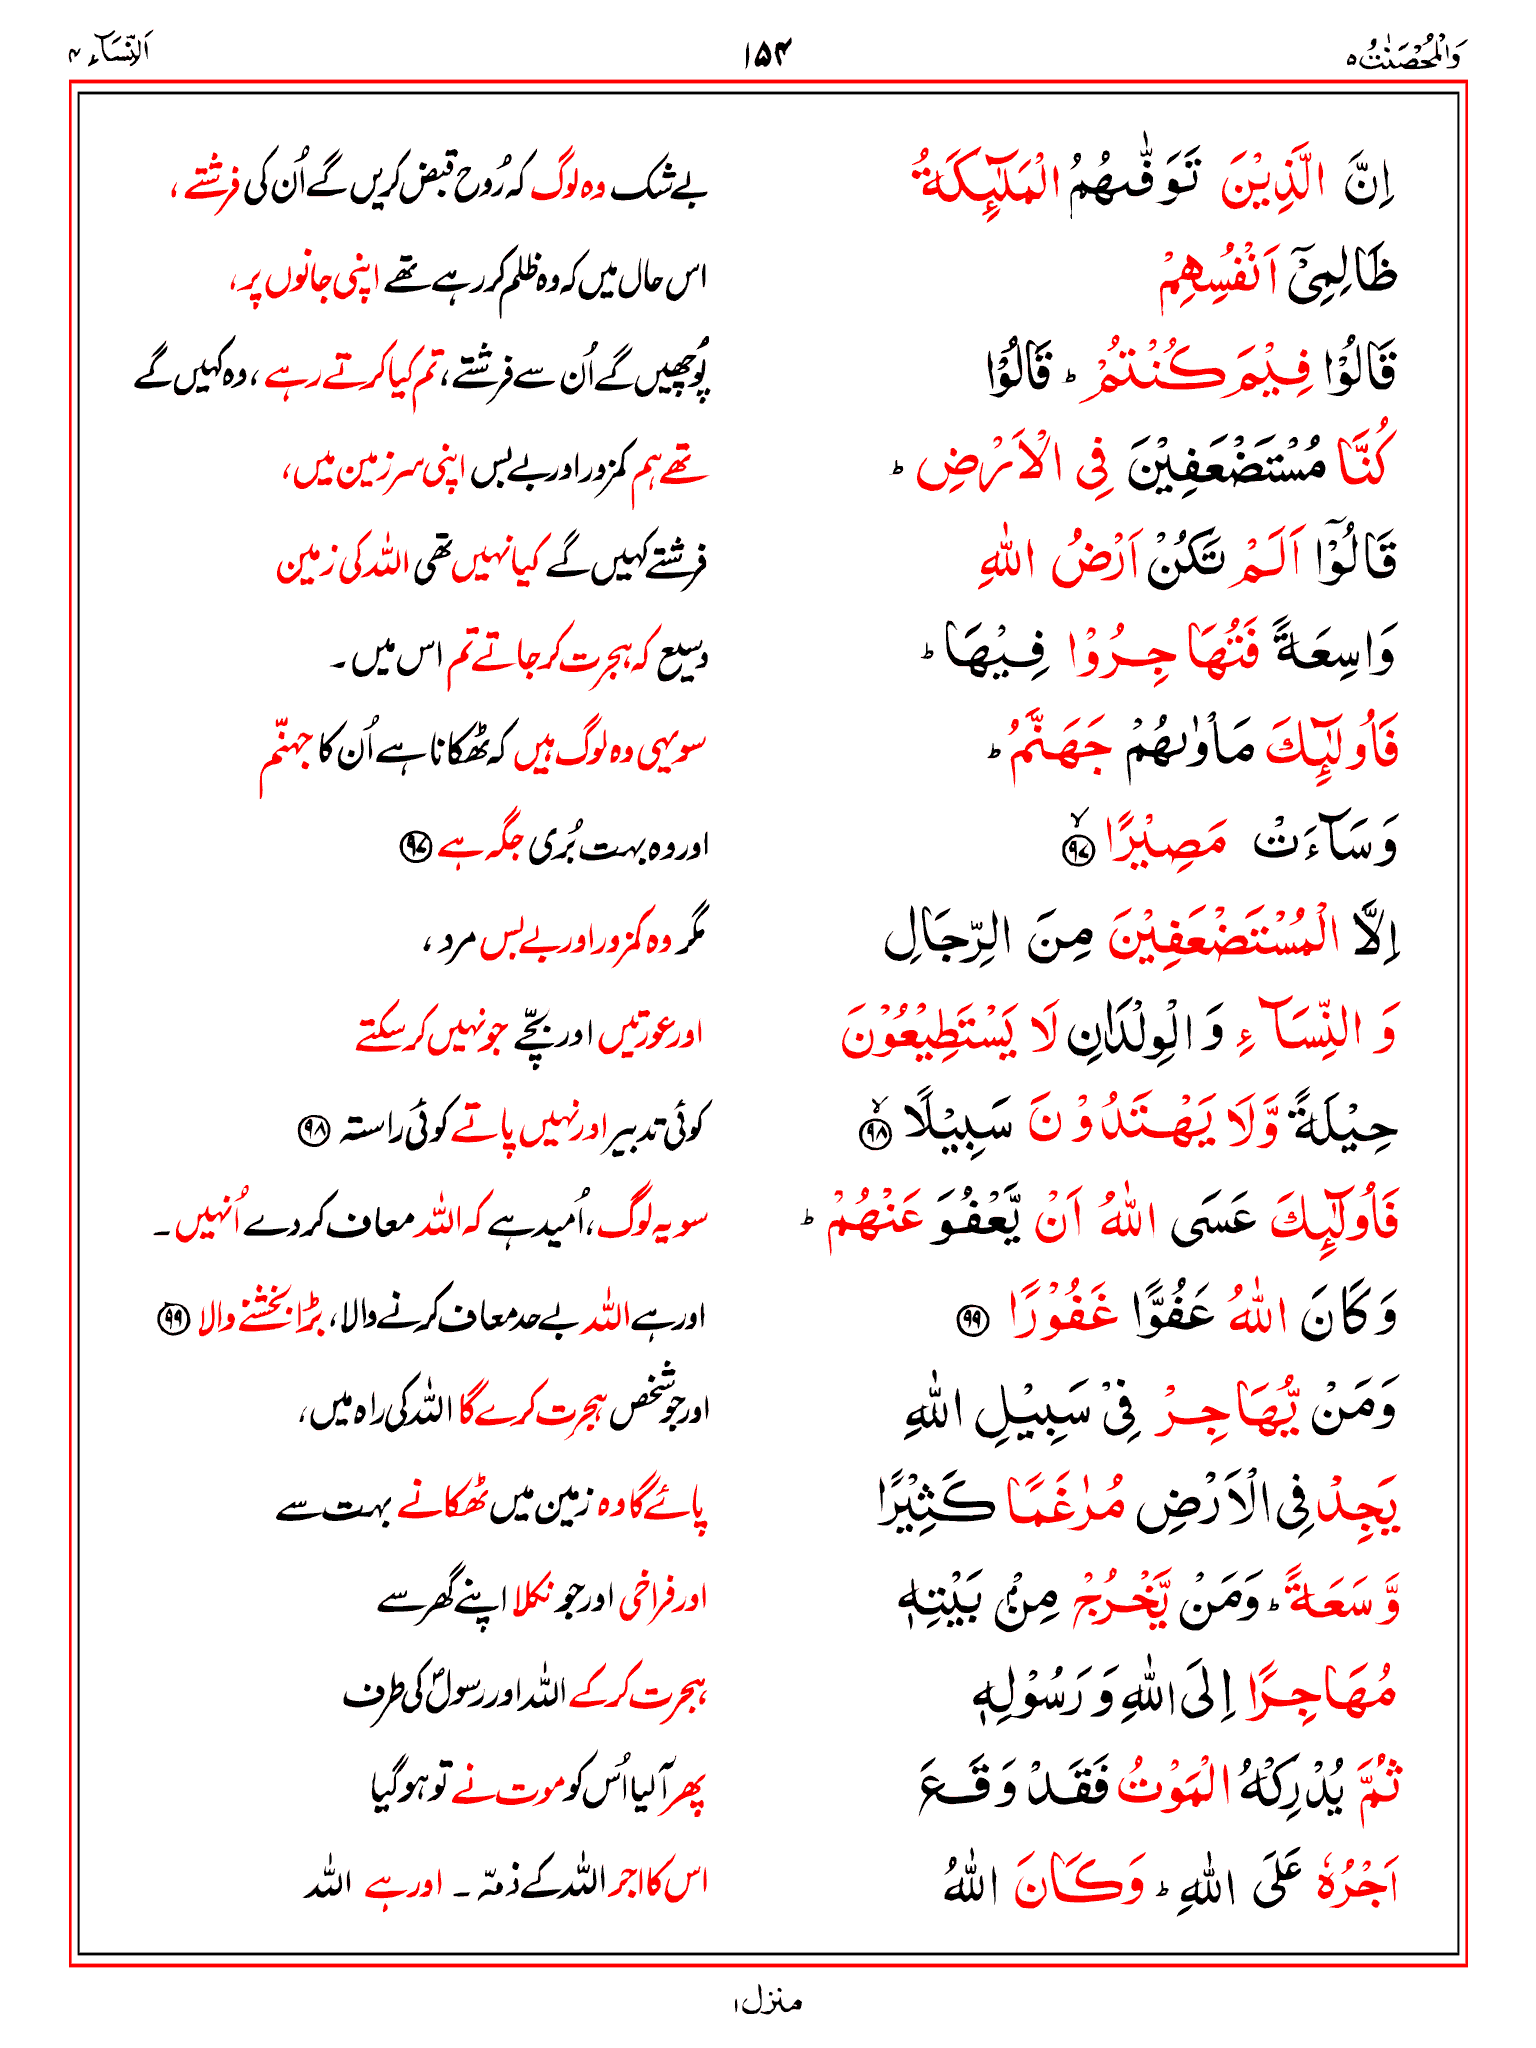 وَالْمُحْصَنٰتُ ۵ ۱۵۴ اَلنِّسَآء ۴
اِنَّ الَّذِيْنَ تَوَفّٰىهُمُ الْمَلٰٓئِكَةُ بے شک وہ لوگ کہ رُوح قبض کریں گے اُن کی فرشتے،
ظَالِمِيْٓ اَنْفُسِهِمْ اس حال میں کہ وہ ظلم کر رہے تھے اپنی جانوں پر،
قَالُوْا فِيْمَ كُنْتُمْ ؕ قَالُوْا پُوچھیں گے اُن سے فرشتے، تم کیا کرتے رہے، وہ کہیں گے
كُنَّا مُسْتَضْعَفِيْنَ فِي الْاَرْضِ ؕ تھے ہم کمزور اور بے بس اپنی سرزمین میں،
قَالُوْٓا اَلَمْ تَكُنْ اَرْضُ اللّٰهِ فرشتے کہیں گے کیا نہیں تھی اللہ کی زمین
وَاسِعَةً فَتُهَاجِرُوْا فِيْهَا ؕ وسیع کہ ہجرت کر جاتے تم اس میں۔
فَاُولٰٓئِكَ مَاْوٰىهُمْ جَهَنَّمُ ؕ سو یہی وہ لوگ ہیں کہ ٹھکانا ہے اُن کا جہنّم
وَسَآءَتْ مَصِيْرًا ۙ‏﴿۹۷﴾ اور وہ بہت بُری جگہ ہے ﴿۹۷﴾
اِلَّا الْمُسْتَضْعَفِيْنَ مِنَ الرِّجَالِ مگر وہ کمزور اور بے بس مرد،
وَ النِّسَآءِ وَ الْوِلْدَانِ لَا يَسْتَطِيْعُوْنَ اور عورتیں اور بچّے جو نہیں کر سکتے
حِيْلَةً وَّلَا يَهْتَدُوْنَ سَبِيْلًا ۙ‏﴿۹۸﴾ کوئی تدبیر اور نہیں پاتے کوئی راستہ ﴿۹۸﴾
فَاُولٰٓئِكَ عَسَى اللّٰهُ اَنْ يَّعْفُوَ عَنْهُمْ ؕ سو یہ لوگ، اُمید ہے کہ اللہ معاف کر دے اُنہیں۔
وَكَانَ اللّٰهُ عَفُوًّا غَفُوْرًا ﴿۹۹﴾ اور ہے اللہ بے حد معاف کرنے والا، بڑا بخشنے والا ﴿۹۹﴾
وَمَنْ يُّهَاجِرْ فِيْ سَبِيْلِ اللّٰهِ اور جو شخص ہجرت کرے گا اللہ کی راہ میں،
يَجِدْ فِي الْاَرْضِ مُرٰغَمًا كَثِيْرًا پائے گا وہ زمین میں ٹھکانے بہت سے
وَّسَعَةً ؕ وَمَنْ يَّخْرُجْ مِنْۢ بَيْتِهٖ اور فراخی اور جو نکلا اپنے گھر سے
مُهَاجِرًا اِلَى اللّٰهِ وَ رَسُوْلِهٖ ہجرت کر کے اللہ اور رسولؐ کی طرف
ثُمَّ يُدْرِكْهُ الْمَوْتُ فَقَدْ وَقَعَ پھر آ لیا اُس کو موت نے تو ہو گیا
اَجْرُهٗ عَلَى اللّٰهِ ؕ وَكَانَ اللّٰهُ اس کا اجر اللہ کے ذمّہ۔ اور ہے اللہ
منزل ۱